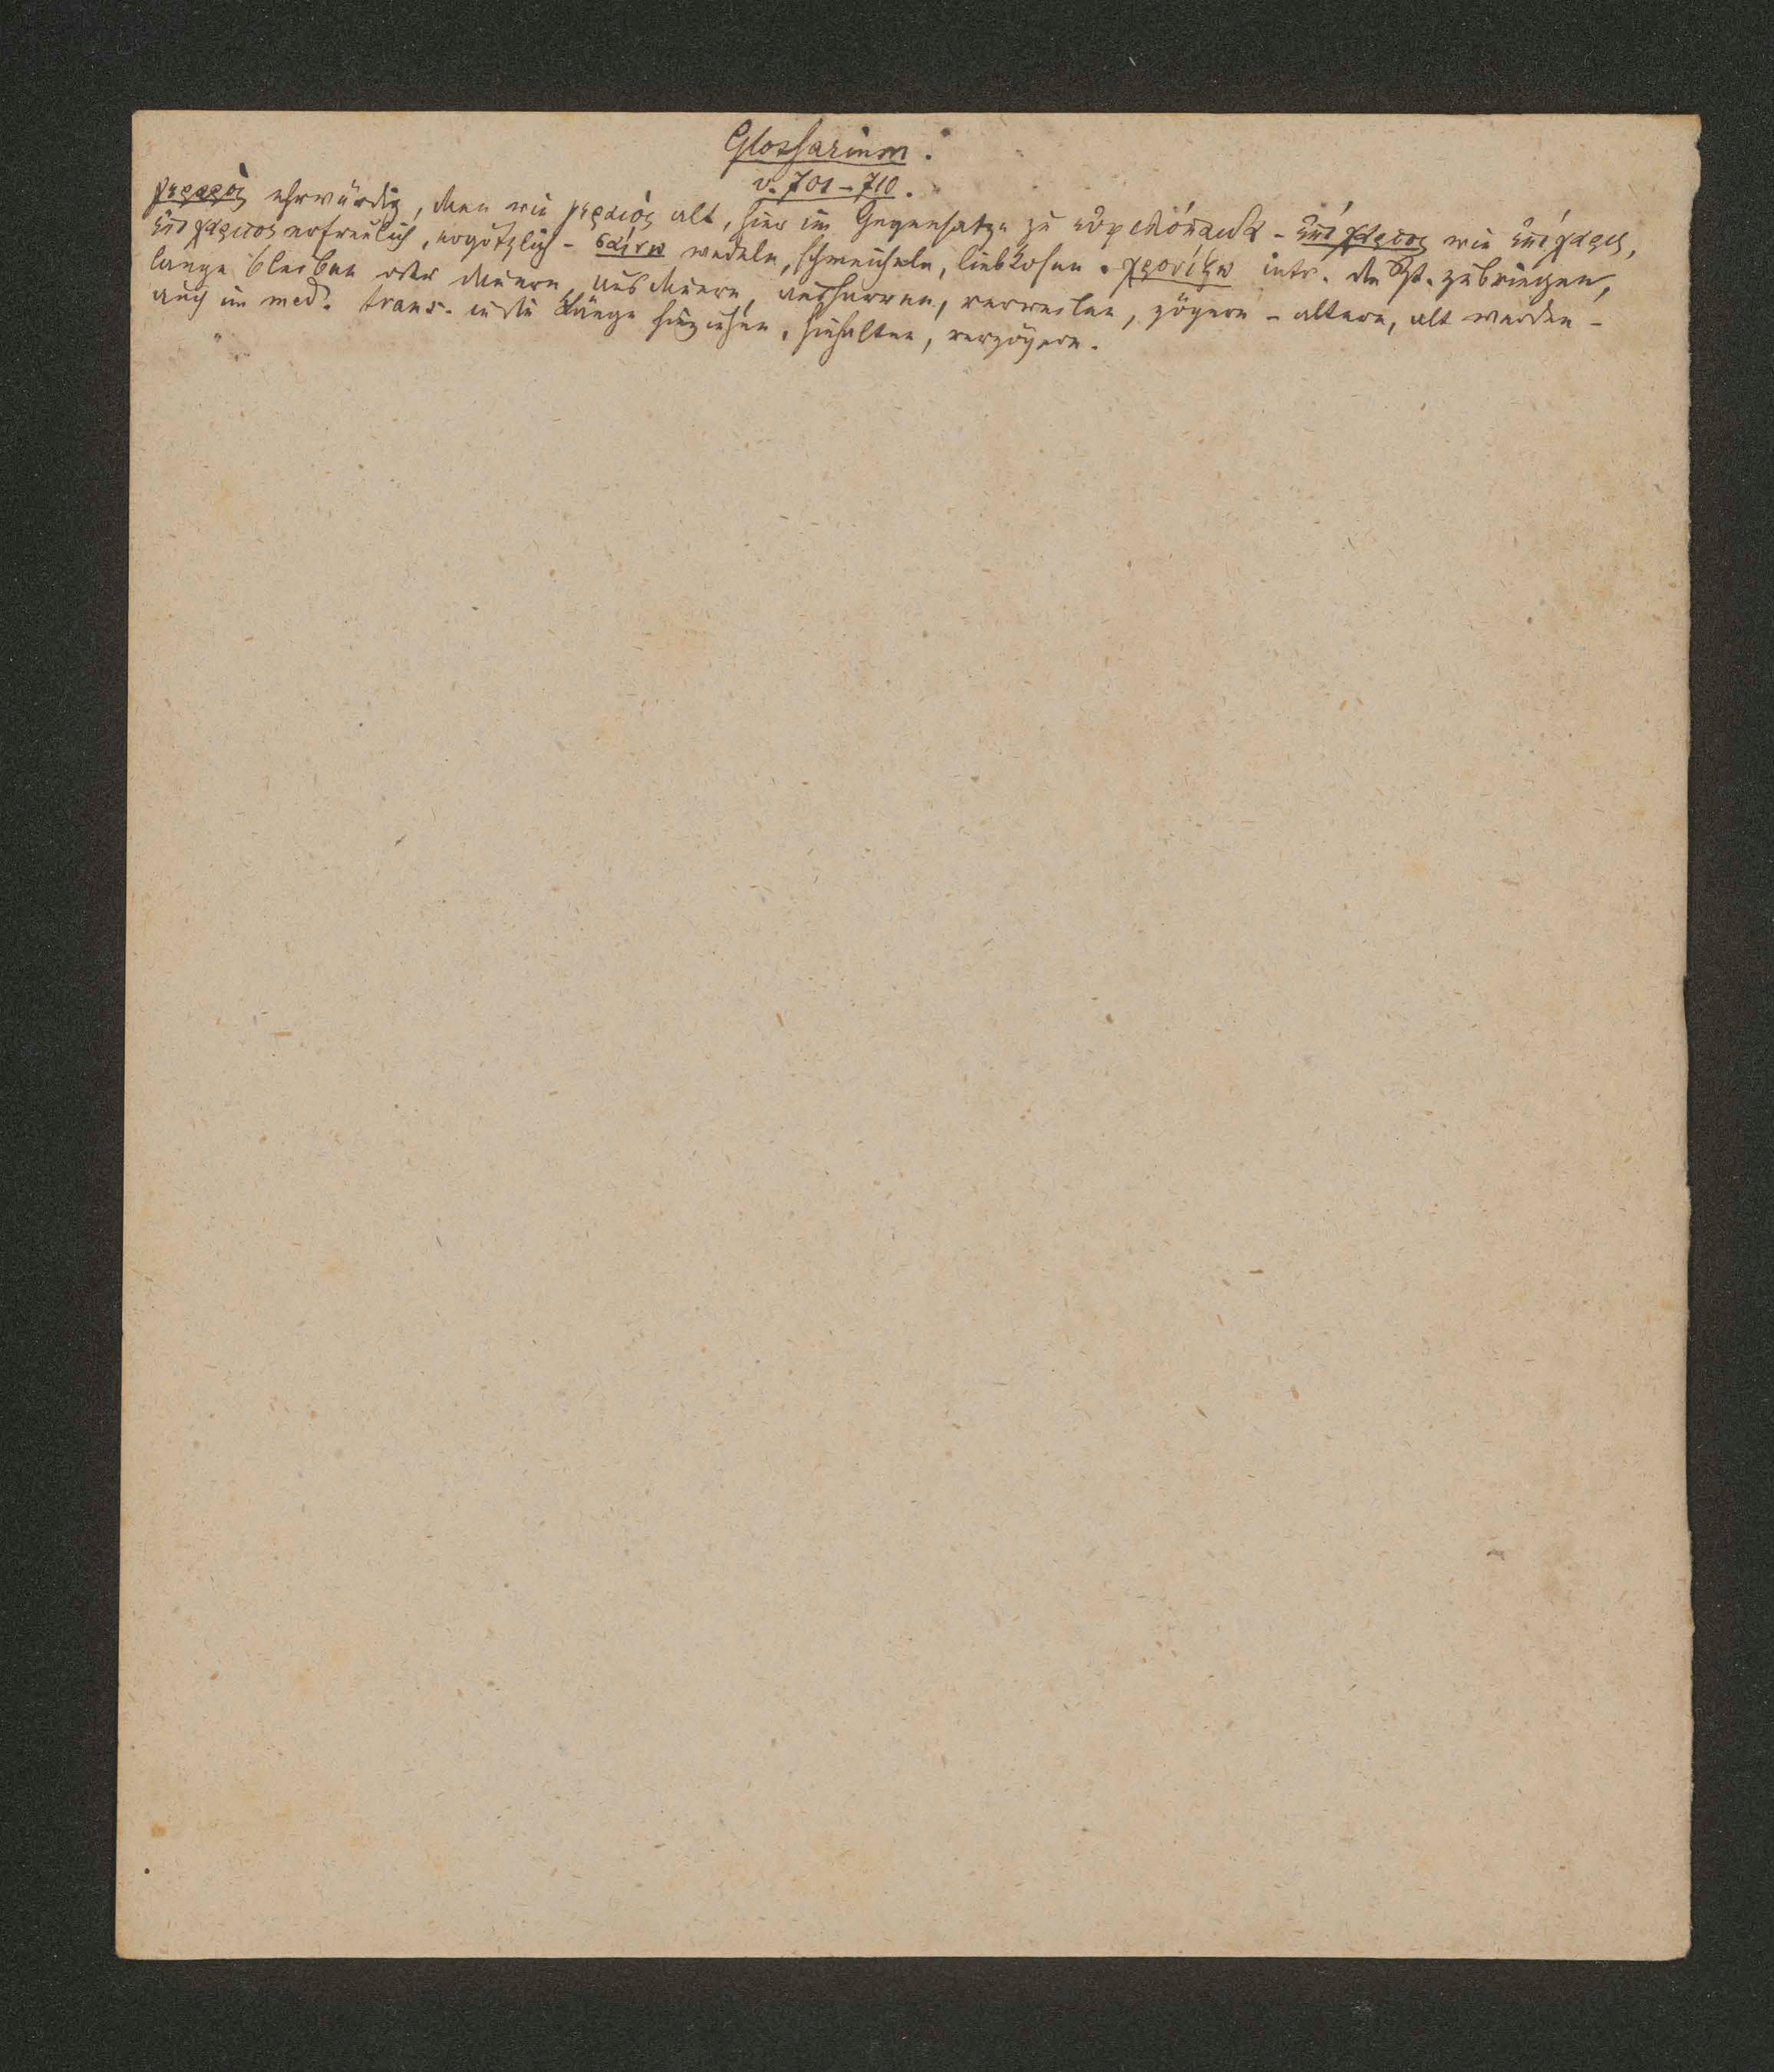 Glossarium.
v. 701–710.
γεραρὸς ehrwürdig, dann wie γεραιὸς alt, hier im Gegensatze zu - ἐπίχαρτος wie ἐπίχαρις,
ἐπιχάριτος erfreulich, ergötzlich - σαίνω wedeln, schmeicheln, liebkosen. χρονίζω intr. die Zt. zubringen,
lange bleiben oder dauern, ausdauern, ausharren, verweilen, zögern - altern, alt werden -
auch im med. trans. in die Länge hinziehen, hinhalten, verzögern.